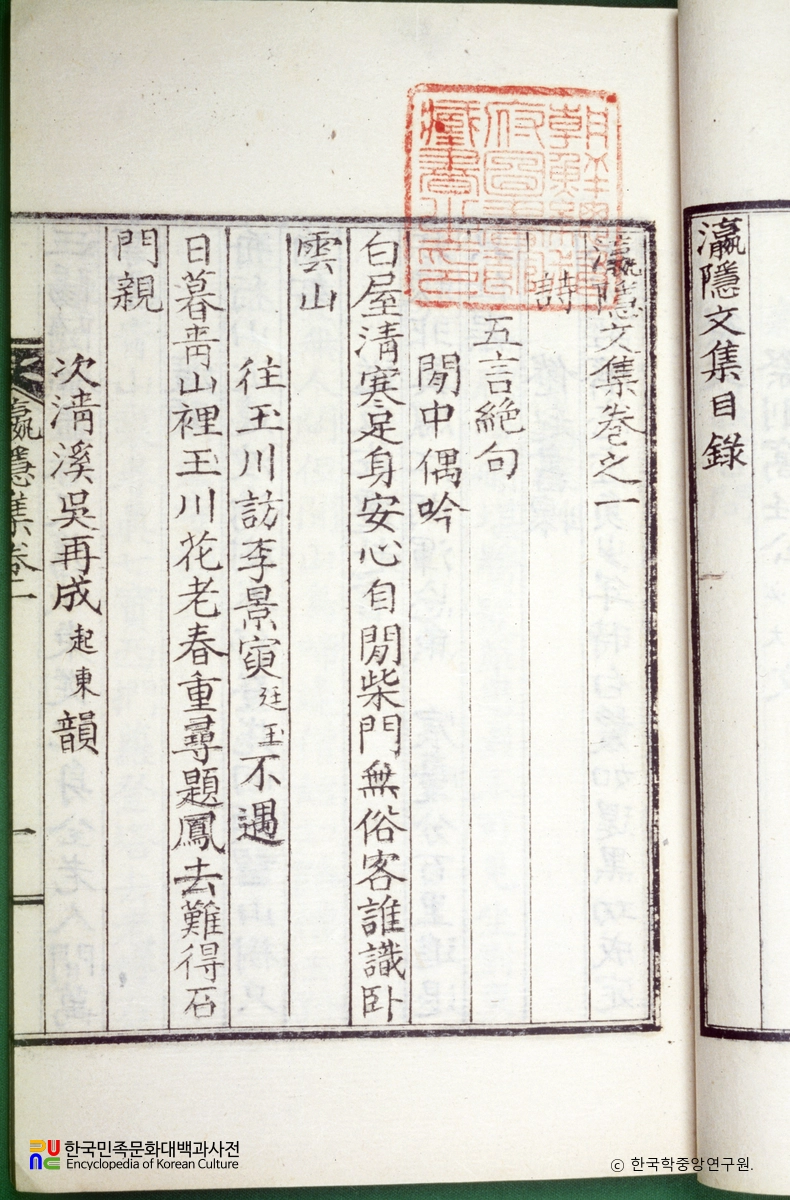 瀛隱文集目錄
瀛隱文集卷之一
詩
五言絶句
閒中偶吟
白屋淸寒足身安心自閒柴門無俗客誰識臥
雲山
往玉川訪李景寅廷玉不遇
日暮靑山裡玉川花老春重尋題鳳去難得石
門親
次淸溪吳再成起東韻
瀛隱集卷一
一
한국민족문화대백과사전
Encyclopedia of Korean Culture
© 한국학중앙연구원.